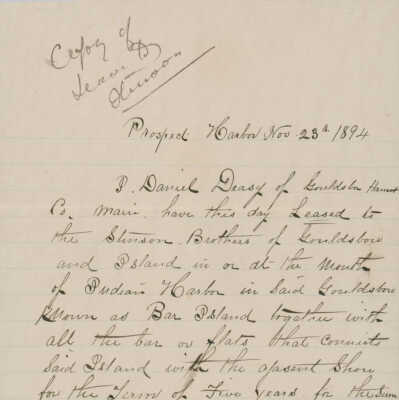 Copy of
Lease to
Stinson
Prospect Harbor Nov 23d 1894
I. Daniel Deasy of Gouldsboro Hancock
Co. Main. have this day Leased to
the Stinson Brothers of Gouldsboro
and Island in or at the Mouth
of Indian Harbor in Said Gouldsboro
Known as Bar Island together with
all the bar or flats that connects
Said Island with the apesent Shore
for the Term of Five years for the Sum